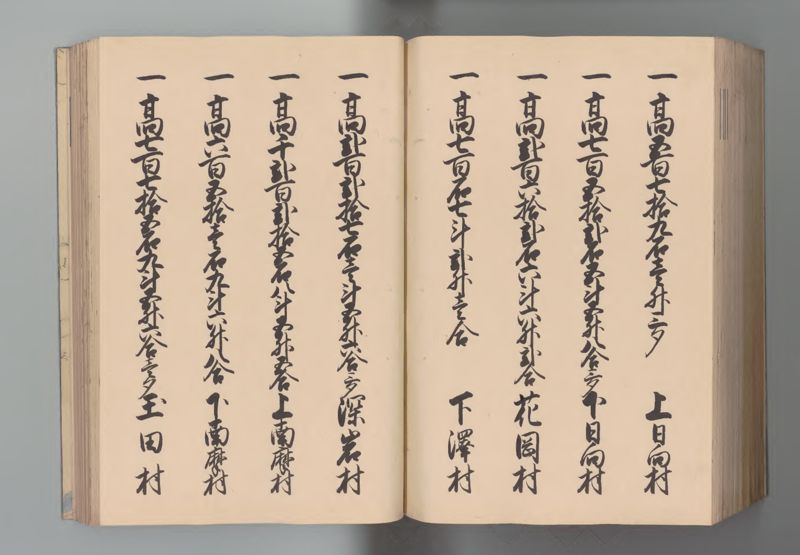 一 高五百七拾九石三升三夕 上日向村
一 高七百五拾弐石五斗五升八合三夕 下日向村
一 高弐百六拾弐石六斗六升弐合 花岡村
一 高七百石七斗弐升壱合 下澤村
一 高弐百弐拾七石三斗五升六合三夕 深岩村
一 高千弐百弐拾五石八斗五升五合 上南摩村
一 高六百五拾壱石九斗六升八合 下南摩村
一 高七百七拾五石九斗五升六合三夕 玉田村